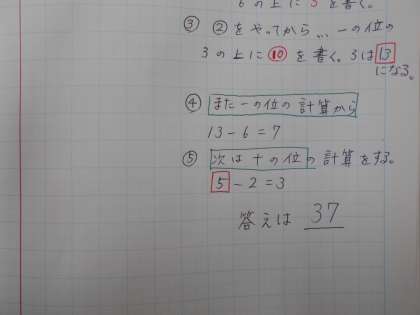 6 の上に 5 を書く。
③ ②をやってから… 一の位の
3 の上に ⑩ を書く。3は 13
になる。
④ また一の位の計算から
13-6=7
⑤ 次は十の位の計算をする。
5-2=3
答えは 37